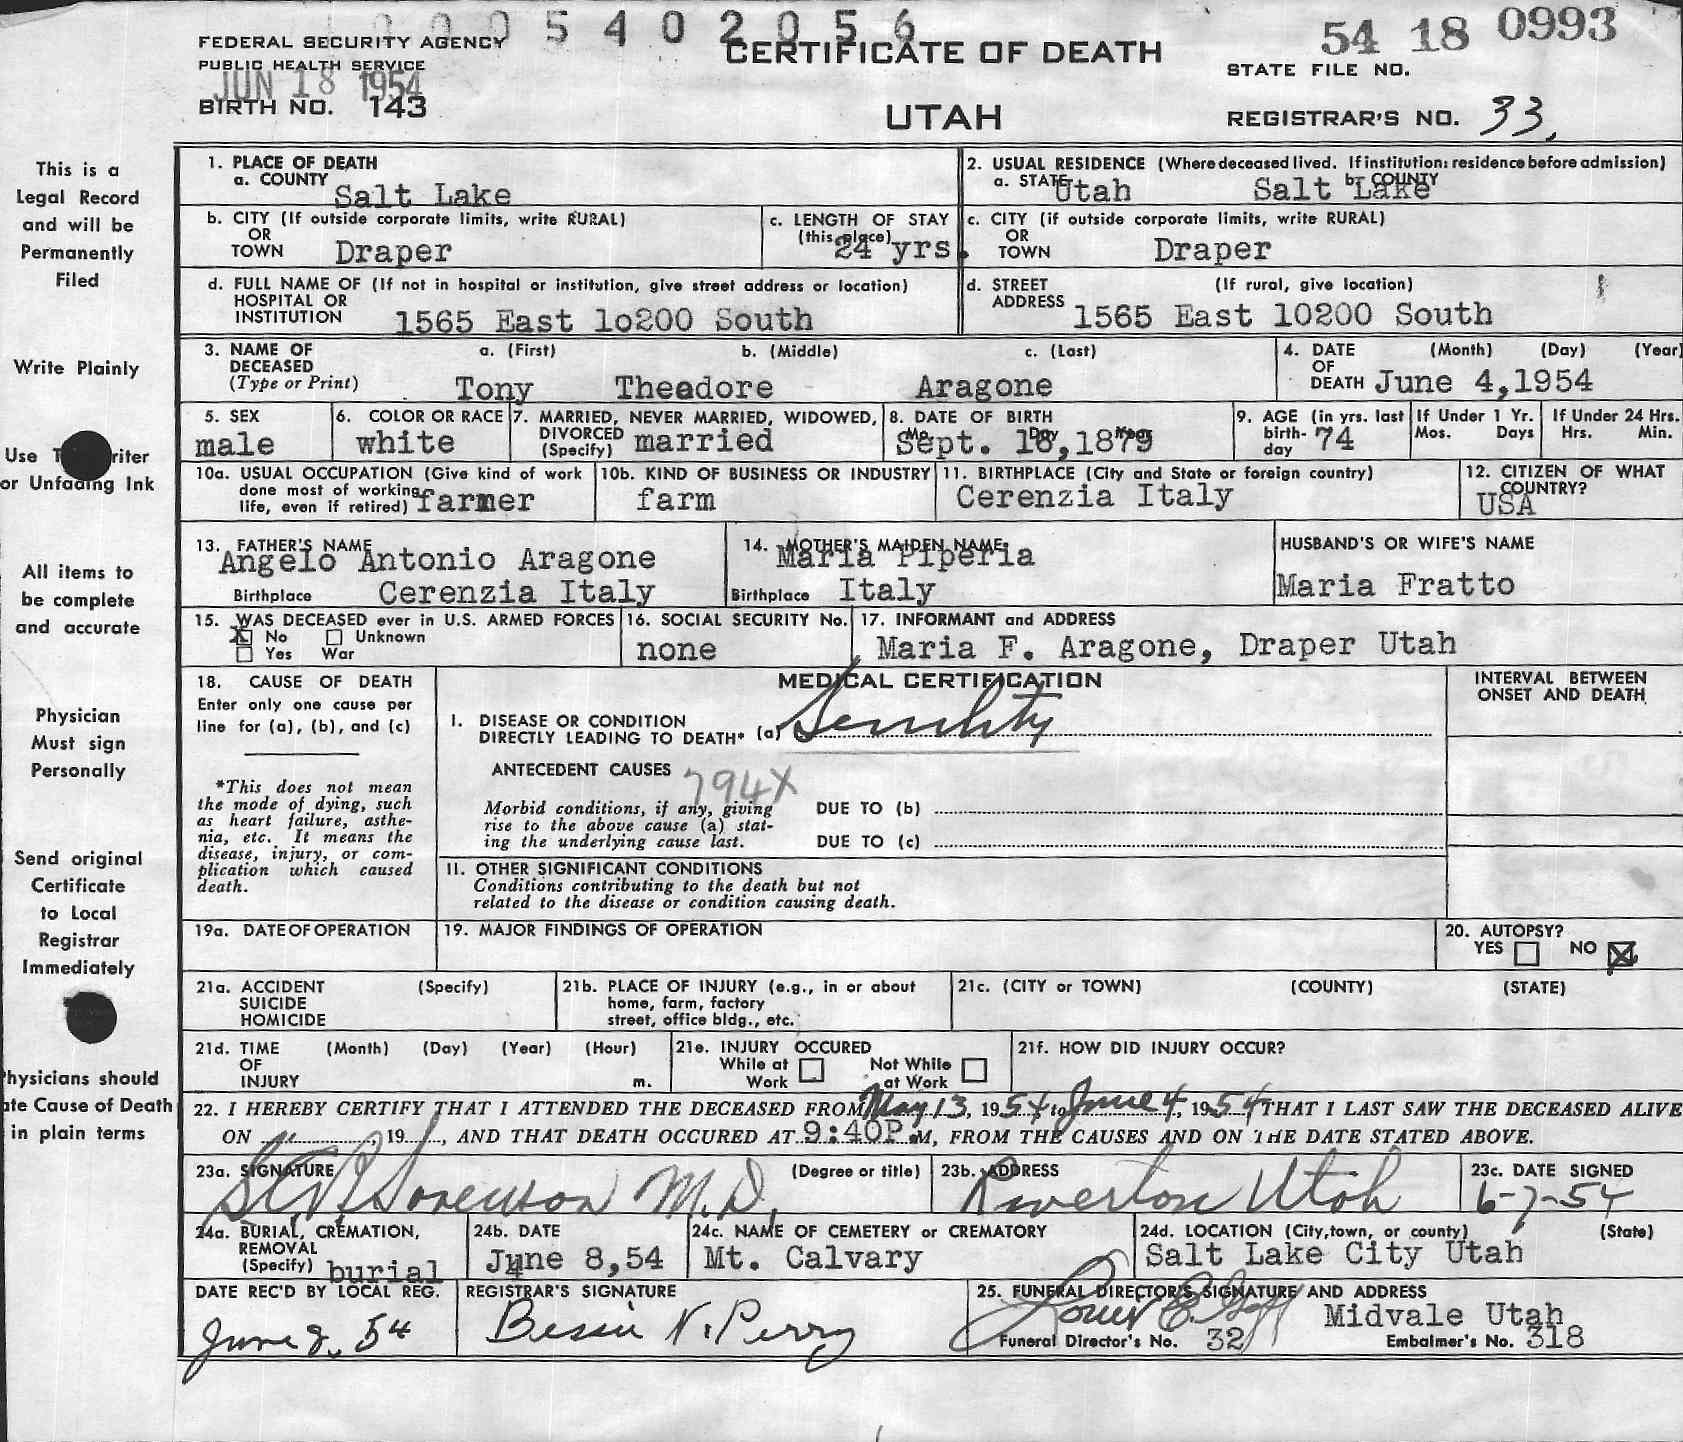 0005402056
54 18 0993
FEDERAL SECURITY AGENCY
CERTIFICATE OF DEATH
PUBLIC HEALTH SERVICE
STATE FILE NO.
JUN 18 1954
BIRTH NO. 143
UTAH
REGISTRAR'S NO. 33.
This is a
Legal Record
and will be
Permanently
Filed
Write Plainly
Use T riter
or Unfading Ink
All items to
be complete
and accurate
Physician
Must sign
Personally
Send original
Certificate
to Local
Registrar
Immediately
hysicians should
ate Cause of Death
in plain terms
1. PLACE OF DEATH
a. COUNTY Salt Lake
2. USUAL RESIDENCE (Where deceased lived. If institution: residence before admission)
a. STATE Utah b. COUNTY Salt Lake
b. CITY (If outside corporate limits, write RURAL)
OR
TOWN Draper
c. LENGTH OF STAY
(this place) 24 yrs.
c. CITY (if outside corporate limits, write RURAL)
OR
TOWN Draper
d. FULL NAME OF (If not in hospital or institution, give street address or location)
HOSPITAL OR
INSTITUTION 1565 East lo200 South
d. STREET (If rural, give location)
ADDRESS 1565 East 10200 South
3. NAME OF a. (First) b. (Middle) c. (Last)
DECEASED
(Type or Print) Tony Theodore Aragone
4. DATE (Month) (Day) (Year)
OF
DEATH June 4,1954
5. SEX
male
6. COLOR OR RACE
white
7. MARRIED, NEVER MARRIED, WIDOWED,
DIVORCED
(Specify) married
8. DATE OF BIRTH
Mo. Day
Sept. 18,1879
9. AGE (in yrs. last
birth-
day 74
If Under 1 Yr.
Mos. Days
If Under 24 Hrs.
Hrs. Min.
10a. USUAL OCCUPATION (Give kind of work
done most of working
life, even if retired) farmer
10b. KIND OF BUSINESS OR INDUSTRY
farm
11. BIRTHPLACE (City and State or foreign country)
Cerenzia Italy
12. CITIZEN OF WHAT
COUNTRY?
USA
13. FATHER'S NAME
Angelo Antonio Aragone
Birthplace Cerenzia Italy
14. MOTHER'S MAIDEN NAME
Maria Piperia
Birthplace Italy
HUSBAND'S OR WIFE'S NAME
Maria Fratto
15. WAS DECEASED ever in U.S. ARMED FORCES
X No Unknown
Yes War
16. SOCIAL SECURITY No.
none
17. INFORMANT and ADDRESS
Maria F. Aragone, Draper Utah
18. CAUSE OF DEATH
Enter only one cause per
line for (a), (b), and (c)
*This does not mean
the mode of dying, such
as heart failure, asthe-
nia, etc. It means the
disease, injury, or com-
plication which caused
death.
MEDICAL CERTIFICATION
INTERVAL BETWEEN
ONSET AND DEATH
I. DISEASE OR CONDITION
DIRECTLY LEADING TO DEATH* (a) Senility
ANTECEDENT CAUSES 794X
Morbid conditions, if any, giving
rise to the above cause (a) stat-
ing the underlying cause last.
DUE TO (b)
DUE TO (c)
11. OTHER SIGNIFICANT CONDITIONS
Conditions contributing to the death but not
related to the disease or condition causing death.
19a. DATE OF OPERATION
19. MAJOR FINDINGS OF OPERATION
20. AUTOPSY?
YES NO X
21a. ACCIDENT (Specify)
SUICIDE
HOMICIDE
21b. PLACE OF INJURY (e.g., in or about
home, farm, factory
street, office bldg., etc.
21c. (CITY or TOWN) (COUNTY) (STATE)
21d. TIME (Month) (Day) (Year) (Hour)
OF
INJURY m.
21e. INJURY OCCURED
While at Not While
Work at Work
21f. HOW DID INJURY OCCUR?
22. I HEREBY CERTIFY THAT I ATTENDED THE DECEASED FROM May 13, 1954 to June 4, 1954 THAT I LAST SAW THE DECEASED ALIVE
ON " , 19 , AND THAT DEATH OCCURED AT 9:40P.M, FROM THE CAUSES AND ON THE DATE STATED ABOVE.
23a. SIGNATURE (Degree or title)
Sorenson M.D.
23b. ADDRESS
Riverton Utah
23c. DATE SIGNED
6-7-54
24a. BURIAL, CREMATION,
REMOVAL
(Specify) burial
24b. DATE
June 8,54
24c. NAME OF CEMETERY or CREMATORY
Mt. Calvary
24d. LOCATION (City,town, or county) (State)
Salt Lake City Utah
DATE REC'D BY LOCAL REG.
June 8, 54
REGISTRAR'S SIGNATURE
Bessie N. Perry
25. FUNERAL DIRECTOR'S SIGNATURE AND ADDRESS
Midvale Utah
Funeral Director's No. 32
Embalmer's No. 318